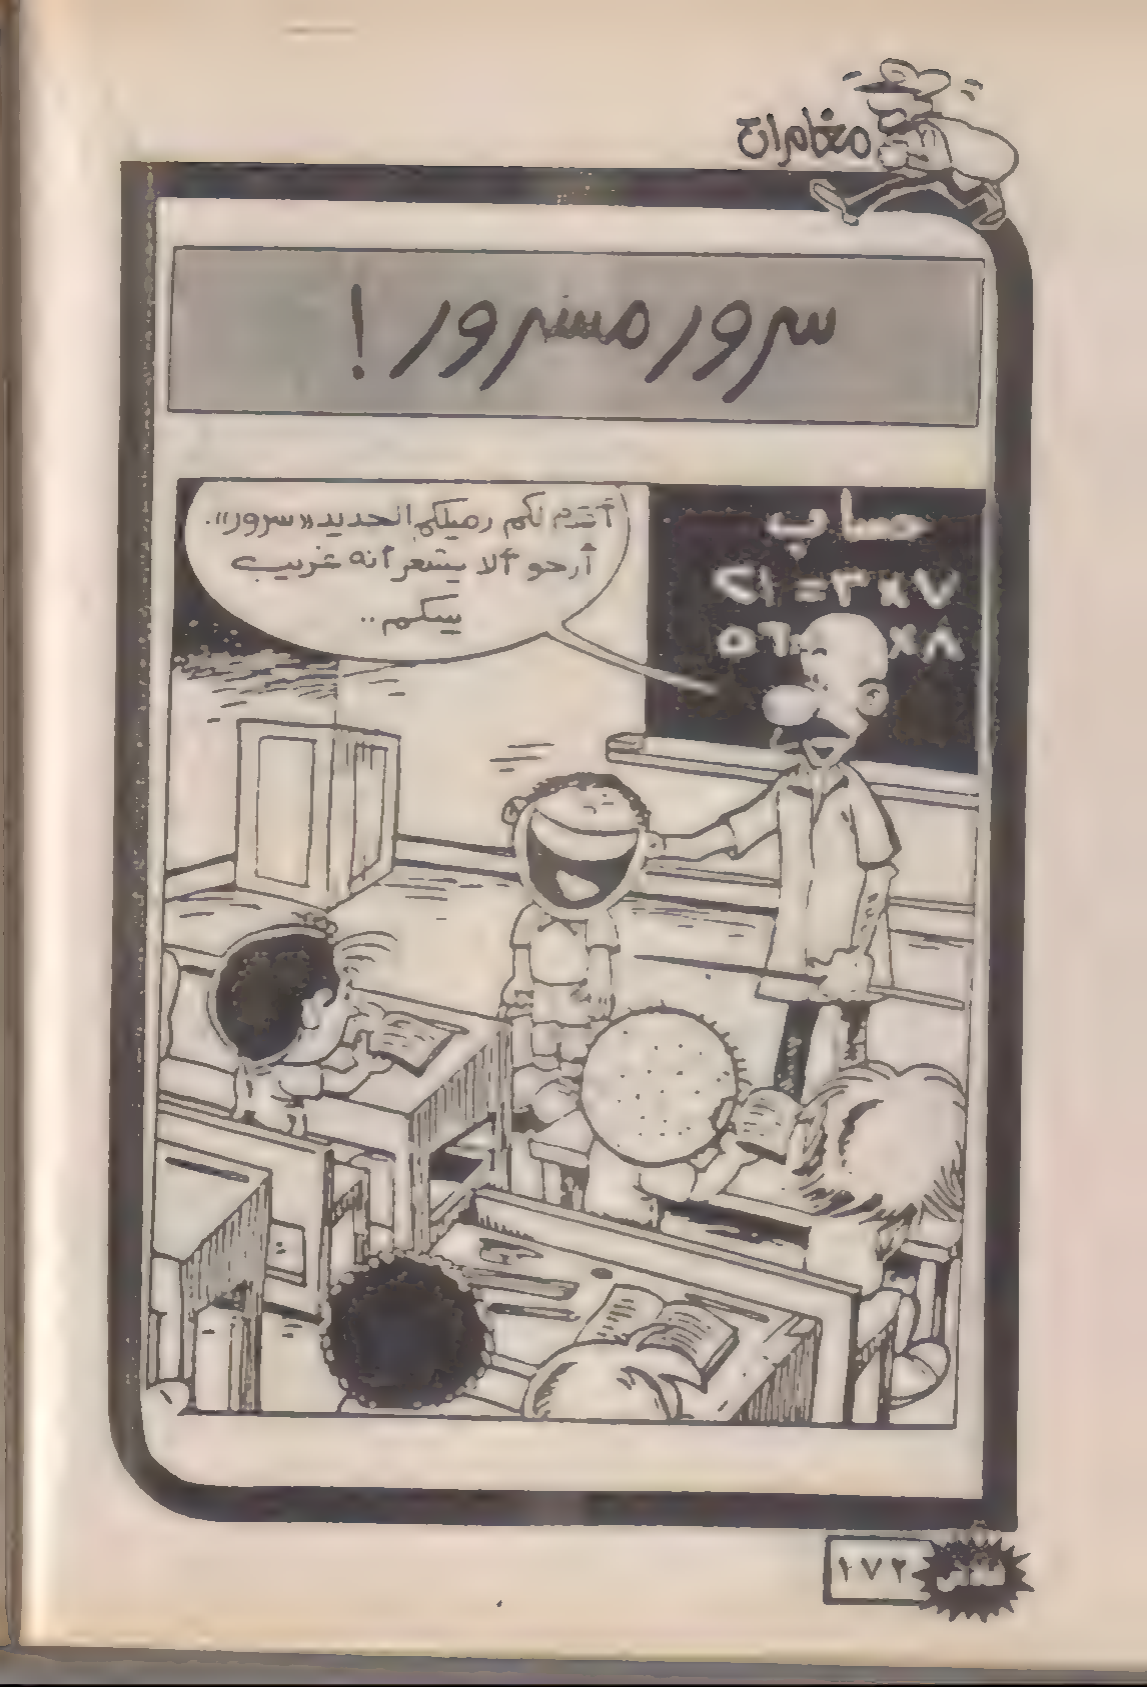 مغامرات
سرور مسرور !
أقدم لكم زميلكم الجديد «سرور».
أرجو ألا يشعر أنه غريب
بينكم ..
حساب
٧×٣=٢١
٨× ٥٦
١٧٢